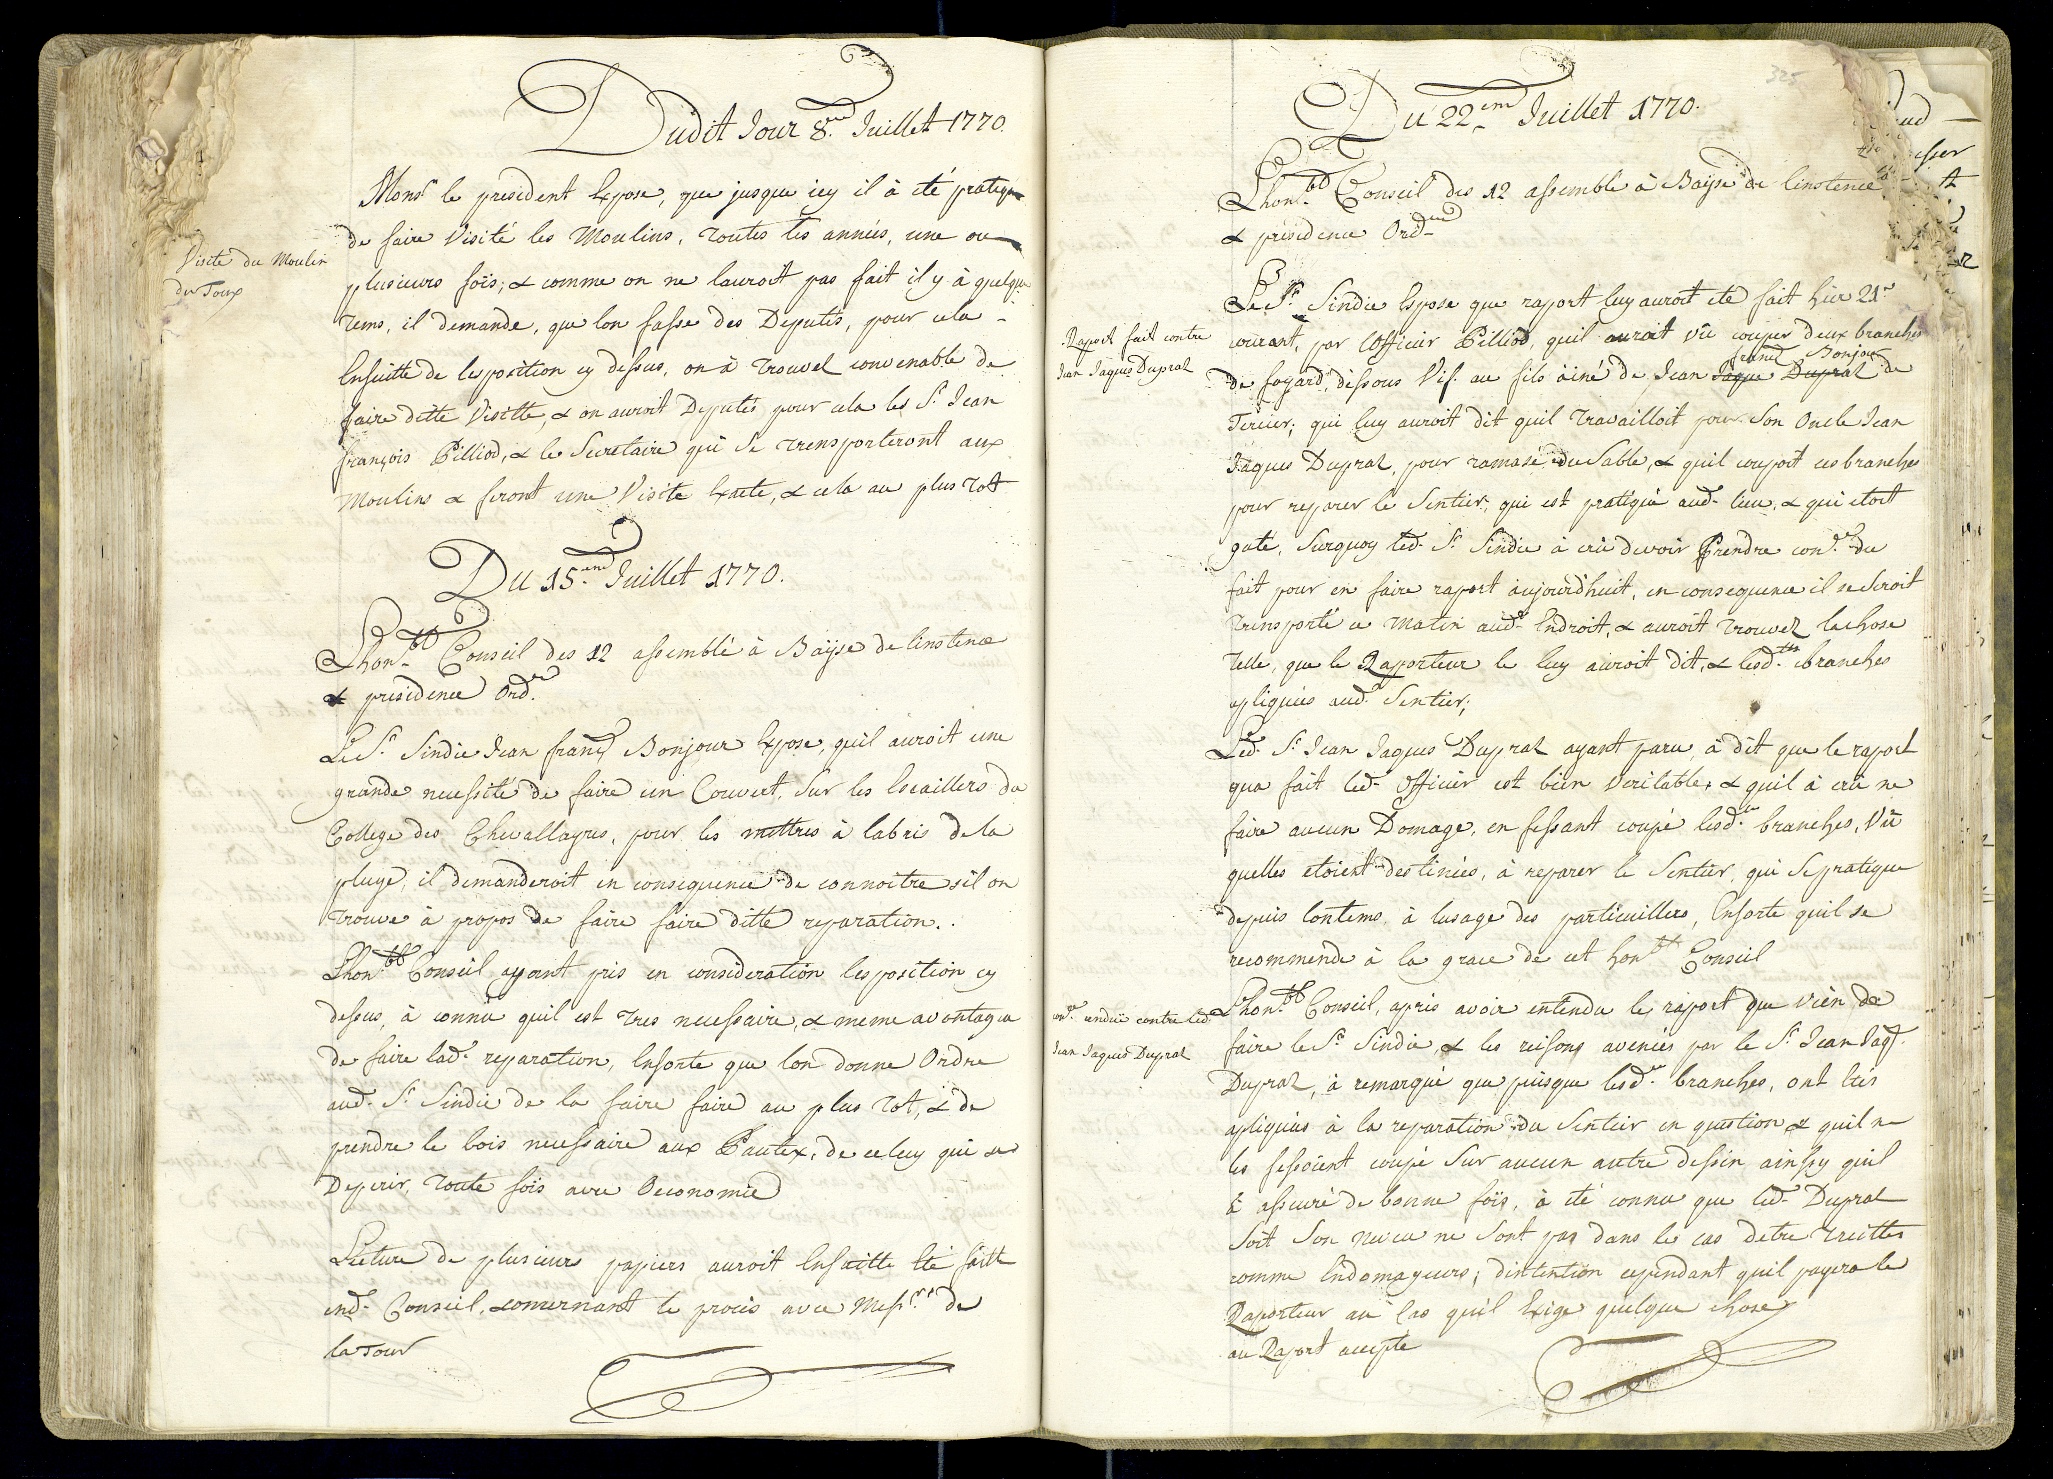 Dudit Jour 8.me Juillet 1770.
Monsr le president Expose, que jusque icy il à été pratiqué
de faire Visité les Moulins, Toutes les années, une ou
Visite du Moulin
du Toux
plusieurs fois; & comme on ne lauroit pas fait il y à quelque
Tems, il demande, que lon fasse des Deputés, pour cela
Ensuitte de lexposition cy dessus, on à Trouvel convenable de
faire ditte Visitte, & on auroit Deputés pour cela les Sr Jean
françois Pilliod, & le Secretaire qui se Transporteront aux
Moulins & feront une Visite Exacte, & cela au plus Tott
Du 15.eme Juillet 1770.
Lhon.ble Conseil des 12 assemblé à Baÿse de linstence
& presidence Ord.re
Le Sr. Sindic Jean franç Bonjour Expose, quil auroit une
grande necessité de faire un Couvert, sur les Escaillers du
College des Chevallayres, pour les mettres à labris de la
pluye, il demanderoit en consequence de connoitre sil on
Trouve à propos de faire faire ditte reparation..
Lhon.ble Conseil ayant pris en consideration lesposition cy
dessus, à connu quil est Tres necessaire, & meme avantageux
de faire lad.e reparation, Ensorte que lon donne Ordre
aud. Sr. Sindic de la faire faire au plus Tot, & de
prendre le bois necessaire aux Pautex, de celuy qui se
Deperir, Toute fois avec Oeconomie
Lecture de plusieurs papiers auroit Ensuitte Eté faitte
end. Conseil, concernant le procès avec Mess.rs de
la Tour
325
Du 22.eme Juillet 1770.
Lhon.ble Conseil des 12 assemble à Baÿse de linstence
& presidence Ord.re
Le Sr. Sindic Expose que raport luy auroit eté fait hier 21.e
Raport fait contre
Jean Jaques Dupraz
courant, par lOfficier Pilliod, quil auroit vû couper deux branches
franç Bonjour
de foyard, dessous Vif. au fils ainé de Jean Jaque Dupraz de
Tercier; qui luy auroit dit quil Travailloit pour Son Oncle Jean
Jaques Dupraz, pour ramasé du Sable, & quil coupoit ces branches
pour reparer le Sentier, qui est pratiqué aud. lieu, & qui etoit
gaté, Surquoy led. Sr Sindic à crû devoir Prendre con.ce du
fait pour en faire raport aujourd'huit, en consequence il se Seroit
Transporté ce Matin aud. Endroit, & auroit Trouvez la chose
Telle, que le Raporteur le luy auroit dit, & lesd.ttes branches
apliquées aud. Sentier;
Led. Sr Jean Jaques Dupraz ayant paru, à dit que le raport
qua fait led. Officier est bien Veritable, & quil à crû ne
faire aucun Domage, en fessant coupé lesd.e branches, Vû
quelles etoient destinées, à reparer le Sentier, qui Se pratique
depuis lontems, à lusage des particuillers, Ensorte quil se
recommende à la grace de cet hon.ble Conseil
con.ce rendüe contre led.
Jean Jaques Dupraz
Lhon.ble Conseil, après avoir entendu le raport que vien de
faire le Sr. Sindic, & les reisons avencées par le Sr. Jean Jaq.
Dupraz, à remarqué que puisque lesd. branches, ont Etés
apliquées à la reparation du Sentier en question & quil ne
les fessoient coupé Sur aucun autre dessin, ainssy quil
à asseuré de bonne fois, à eté connu que led. Dupraz
Soit Son neveu ne Sont pas dans le cas detre Treittés
comme Endomageurs; dintention cependant quil payera le
Raporteur au Cas quil Exige quelque chose,
au Raport accepté